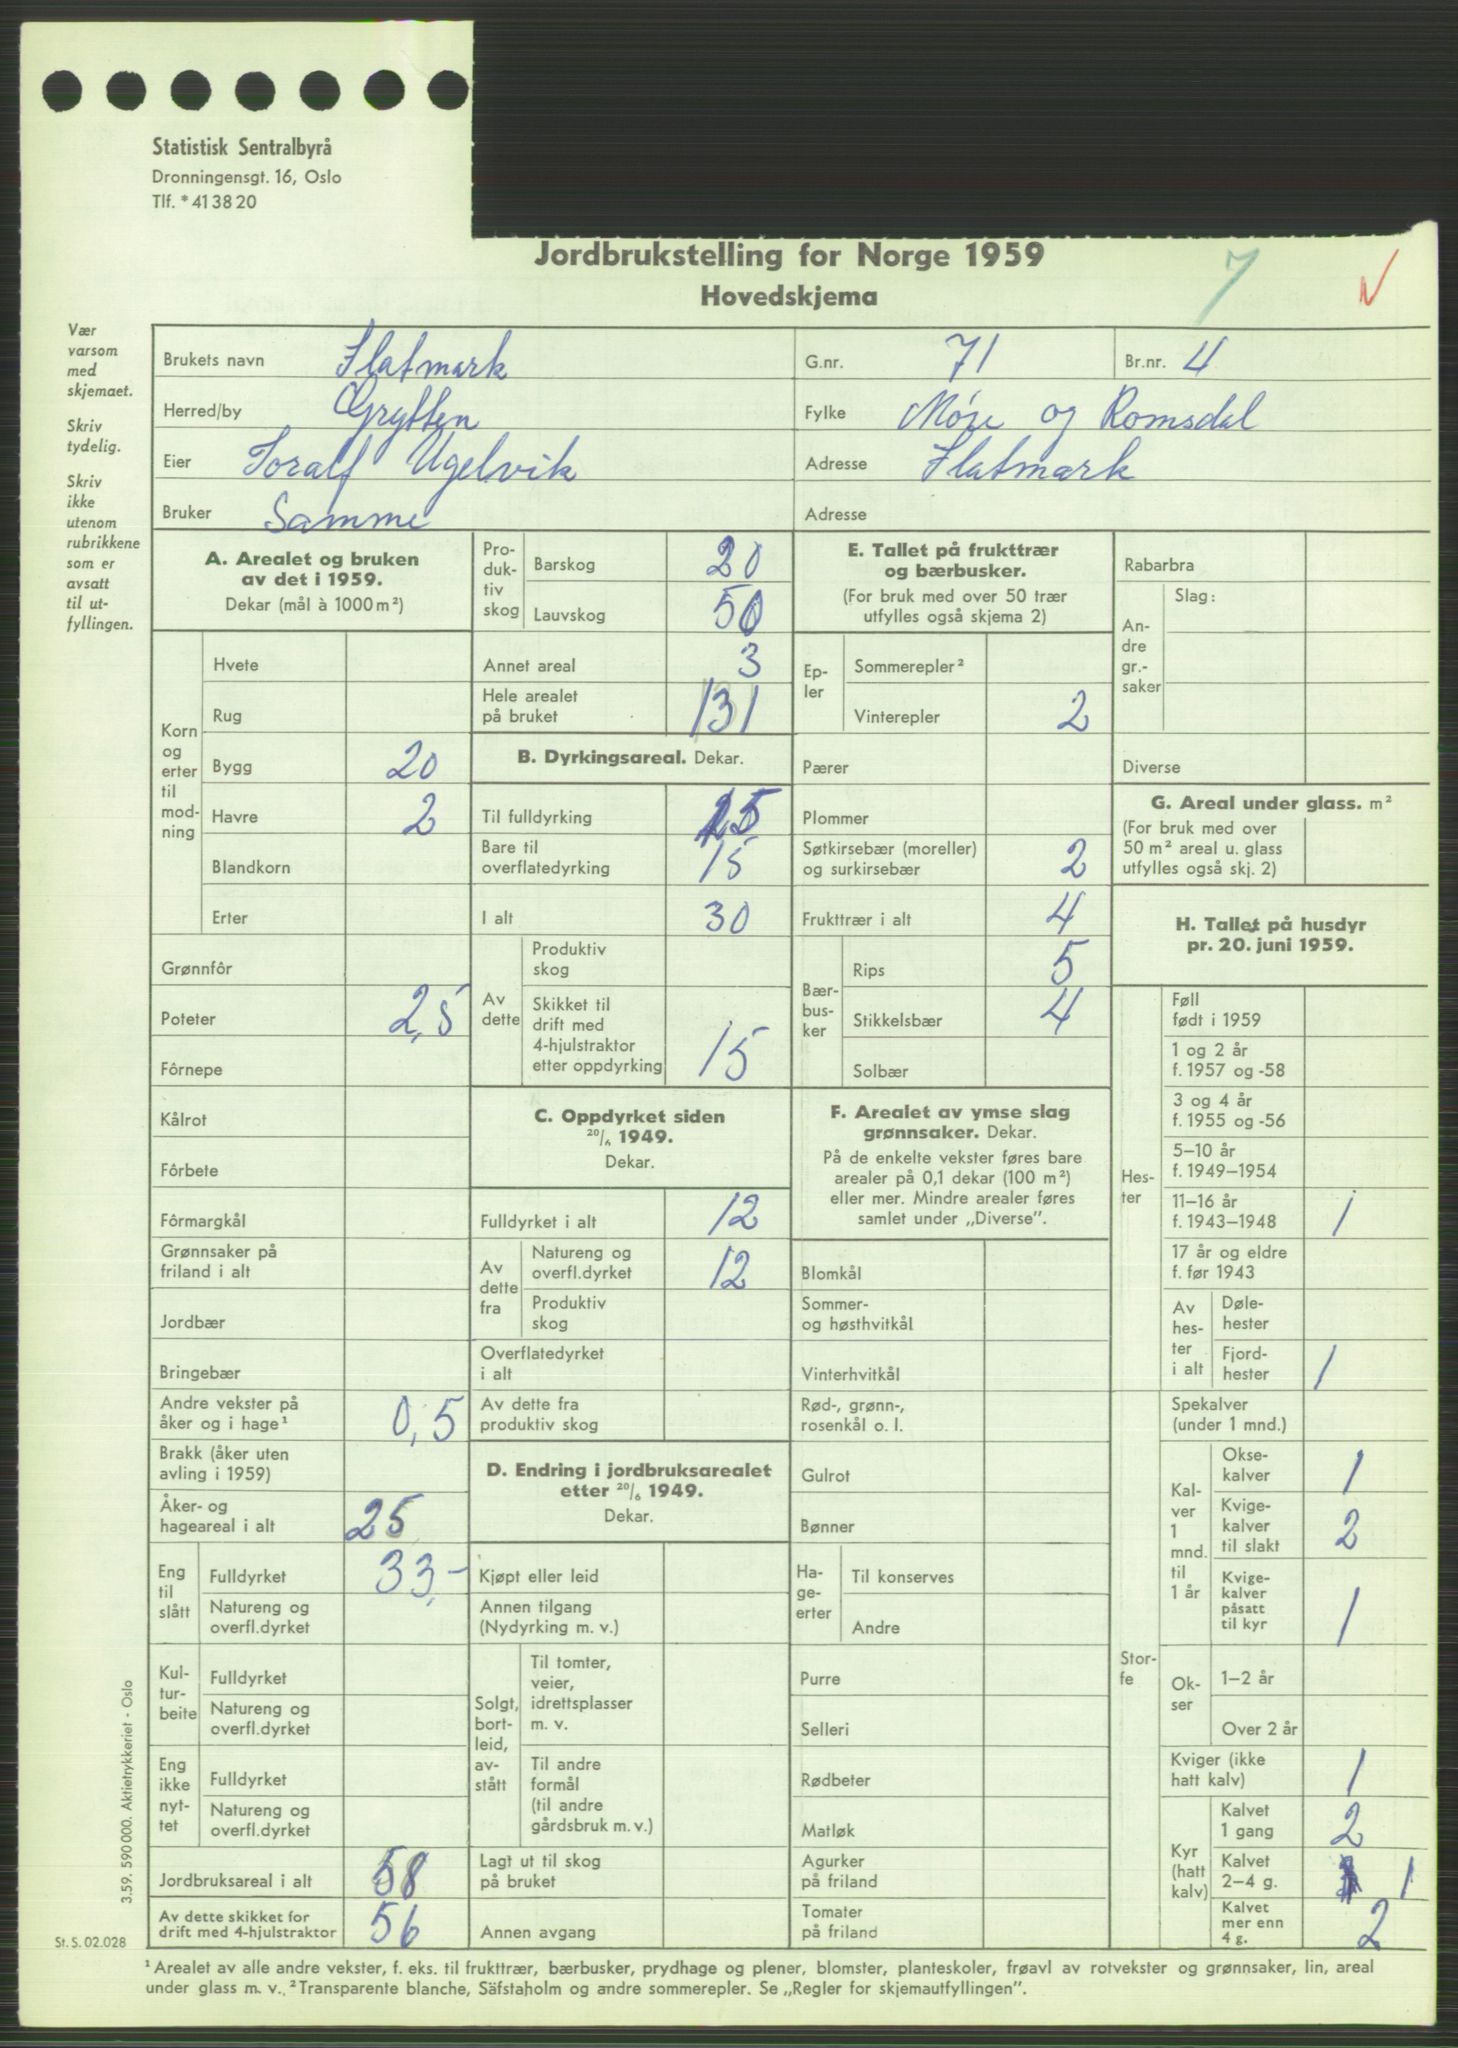 Statistisk Sentralbyrå
Dronningensgt. 16, Oslo
Tlf. * 41 38 20
Jordbrukstelling for Norge 1959
Hovedskjema
7
Vær
varsom
med
skjemaet.
Skriv
tydelig.
Skriv
ikke
utenom
rubrikkene
som er
avsatt
til ut-
fyllingen.
Brukets navn Flatmark G.nr. 71 Br.nr. 4
Herred/by Grytten Fylke Møre og Romsdal
Eier Toralf Ugelvik Adresse Flatmark
Bruker Samme Adresse
A. Arealet og bruken
av det i 1959.
Dekar (mål à 1000 m²)
Korn
og
erter
til
mod-
ning
Hvete
Rug
Bygg 20
Havre 2
Blandkorn
Erter
Grønnfôr
Poteter 2,5
Fôrnepe
Kålrot
Fôrbete
Fôrmargkål
Grønnsaker på
friland i alt
Jordbær
Bringebær
Andre vekster på
åker og i hage¹ 0,5
Brakk (åker uten
avling i 1959)
Åker- og
hageareal i alt 25
Eng
til
slått
Fulldyrket 33,-
Natureng og
overfl.dyrket
Kul-
tur-
beite
Fulldyrket
Natureng og
overfl.dyrket
Eng
ikke
nyt-
tet
Fulldyrket
Natureng og
overfl.dyrket
Jordbruksareal i alt 58
Av dette skikket for
drift med 4-hjulstraktor 56
Pro-
duk-
tiv
skog
Barskog 20
Lauvskog 50
Annet areal 3
Hele arealet
på bruket 131
B. Dyrkingsareal. Dekar.
Til fulldyrking 15
Bare til
overflatedyrking 15
I alt 30
Av
dette
Produktiv
skog
Skikket til
drift med
4-hjulstraktor
etter oppdyrking 15
C. Oppdyrket siden
20/6 1949.
Dekar.
Fulldyrket i alt 12
Av
dette
fra
Natureng og
overfl.dyrket 12
Produktiv
skog
Overflatedyrket
i alt
Av dette fra
produktiv skog
D. Endring i jordbruksarealet
etter 20/6 1949.
Dekar.
Kjøpt eller leid
Annen tilgang
(Nydyrking m. v.)
Solgt,
bort-
leid,
av-
stått
Til tomter,
veier,
idrettsplasser
m. v.
Til andre
formål
(til andre
gårdsbruk m. v.)
Lagt ut til skog
på bruket
Annen avgang
E. Tallet på frukttrær
og bærbusker.
(For bruk med over 50 trær
utfylles også skjema 2)
Ep-
ler
Sommerepler²
Vinterepler 2
Pærer
Plommer
Søtkirsebær (moreller)
og surkirsebær 2
Frukttrær i alt 4
Bær-
bus-
ker
Rips 5
Stikkelsbær 4
Solbær
F. Arealet av ymse slag
grønnsaker. Dekar.
På de enkelte vekster føres bare
arealer på 0,1 dekar (100 m²)
eller mer. Mindre arealer føres
samlet under „Diverse”.
Blomkål
Sommer-
og høsthvitkål
Vinterhvitkål
Rød-, grønn-,
rosenkål o. l.
Gulrot
Bønner
Ha-
ge-
erter
Til konserves
Andre
Purre
Selleri
Rødbeter
Matløk
Agurker
på friland
Tomater
på friland
Rabarbra
An-
dre
gr.-
saker
Slag:
Diverse
G. Areal under glass. m²
(For bruk med over
50 m² areal u. glass
utfylles også skj. 2)
H. Tallet på husdyr
pr. 20. juni 1959.
Hes-
ter
Føll
født i 1959
1 og 2 år
f. 1957 og -58
3 og 4 år
f. 1955 og -56
5–10 år
f. 1949–1954
11–16 år
f. 1943–1948 1
17 år og eldre
f. før 1943
Av
hes-
ter
i alt
Døle-
hester
Fjord-
hester 1
Stor-
fe
Spekalver
(under 1 mnd.)
Kal-
ver
1
mnd.
til
1 år
Okse-
kalver 1
Kvige-
kalver
til slakt 2
Kvige-
kalver
påsatt
til kyr 1
Ok-
ser
1–2 år
Over 2 år
Kviger (ikke
hatt kalv) 1
Kyr
(hatt
kalv)
Kalvet
1 gang 2
Kalvet
2–4 g. 1
Kalvet
mer enn
4 g. 2
3.59. 590 000. Aktietrykkeriet - Oslo
St. S. 02.028
¹ Arealet av alle andre vekster, f. eks. til frukttrær, bærbusker, prydhage og plener, blomster, planteskoler, frøavl av rotvekster og grønnsaker, lin, areal
under glass m. v. ² Transparente blanche, Säfstaholm og andre sommerepler. Se „Regler for skjemautfyllingen”.